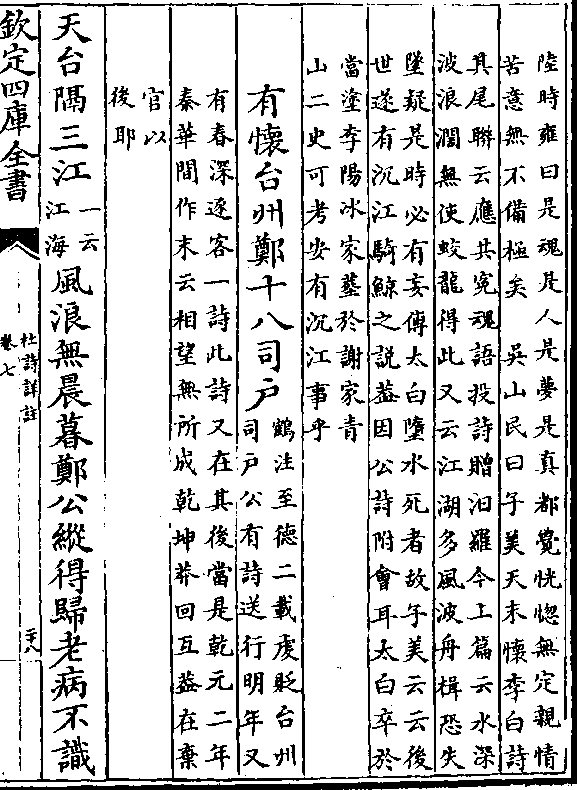 陸時雍曰是魂是人是夢是真都覺恍惚無定親情
苦意無不備極矣　吳山民曰子美天末懷李白詩
其尾聯云應共冤魂語投詩贈汨羅今上篇云水深
波浪濶無使蛟龍得此又云江湖多風波舟楫恐失
墜疑是時必有妄傳太白墮水死者故子美云云後
世遂有沉江騎鯨之説葢因公詩附會耳太白卒於
當塗李陽冰家葬於謝家青
山二史可考安有沉江事乎
有懷台州鄭十八司戶
鶴注至德二載虔貶台州
司戶公有詩送行明年又
有春深逐客一詩此詩又在其後當是乾元二年
秦華間作末云相望無所成乾坤莽回互葢在棄
官以
後耶
天台隔三江
一云
江海
風浪無晨暮鄭公縱得歸老病不識
欽定四庫全書
杜詩詳註
卷七
二十八